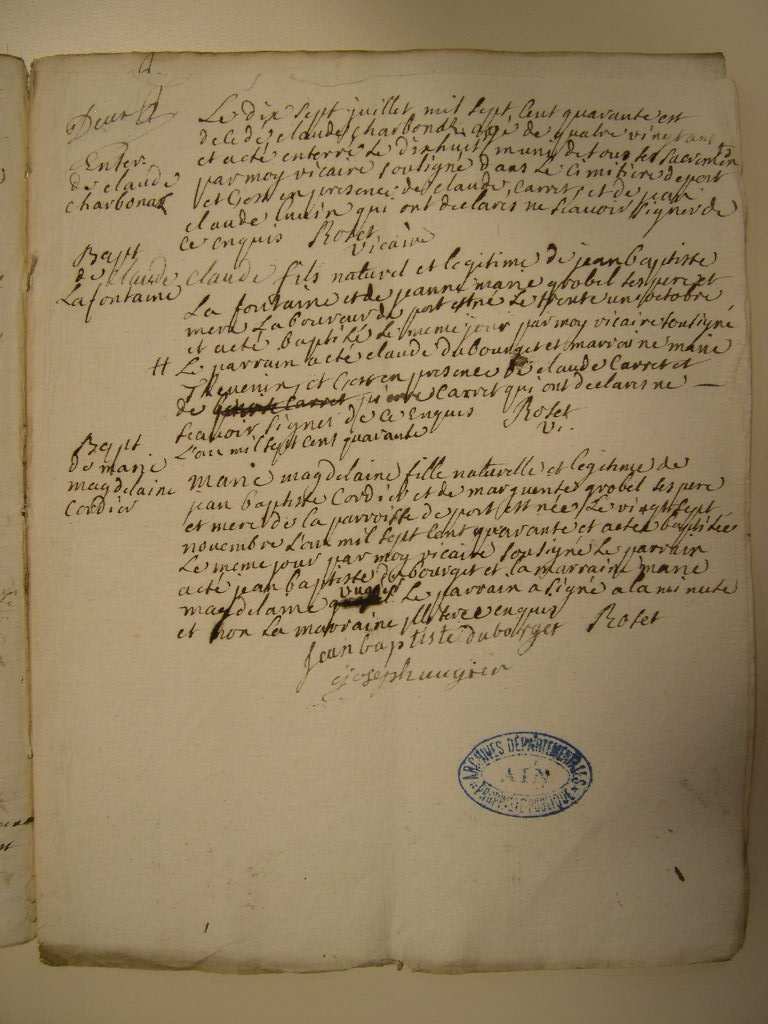 Le dix sept juillet mil sept cent quarante est
decedé claude charbondz agé de quatre vingt ans
et a eté enterré Le dixhuit muny de tous ses sacremen
par moy vicaire soutigné dans Le cimitiere de port
et C'est en presence de claude Carret, et de jean
claude qui ont declarés ne scavoir signer de
Ce enquis Rolet
vicaire
Enter.
de claude
charbonaz
Bapt
de claude
La fontaine
claude fils naturel et legitime de jean baptiste
La fontaine et de jeanne marie grobel ses pere et
mere Laboureur de port est né Le trente un octobre
et a eté baptisé Le meme jour par moy vicaire soutigné
Le parrain a eté claude dubourget et marraine marie
Thevenin, et C'est en presence de claude Carret et
de Carret Carret qui ont declarés ne
scavoir signer de Ce Enquis Rolet
L'an mil sept cens quarante Vi.
Bapt
de marie
magdelaine
Cordier
marie magdelaine fille naturelle et legitime de
jean baptiste Cordier et de marguerite grobel ses pere
et mere de la parroisse de port est née Le vingt sept
novembre L'an mil sept Cent quarante et a eté baptisée
Le meme jour par moy vicaire soutigné Le parrain
a eté jean baptiste dubourget et la marraine marie
magdelaine Le parrain a signé a la minute
et non La marraine enquis
Jean baptiste dubourget Rolet
ARCHIVES DÉPARTEMENTALES
AIN
PROPRIÉTÉ PUBLIQUE